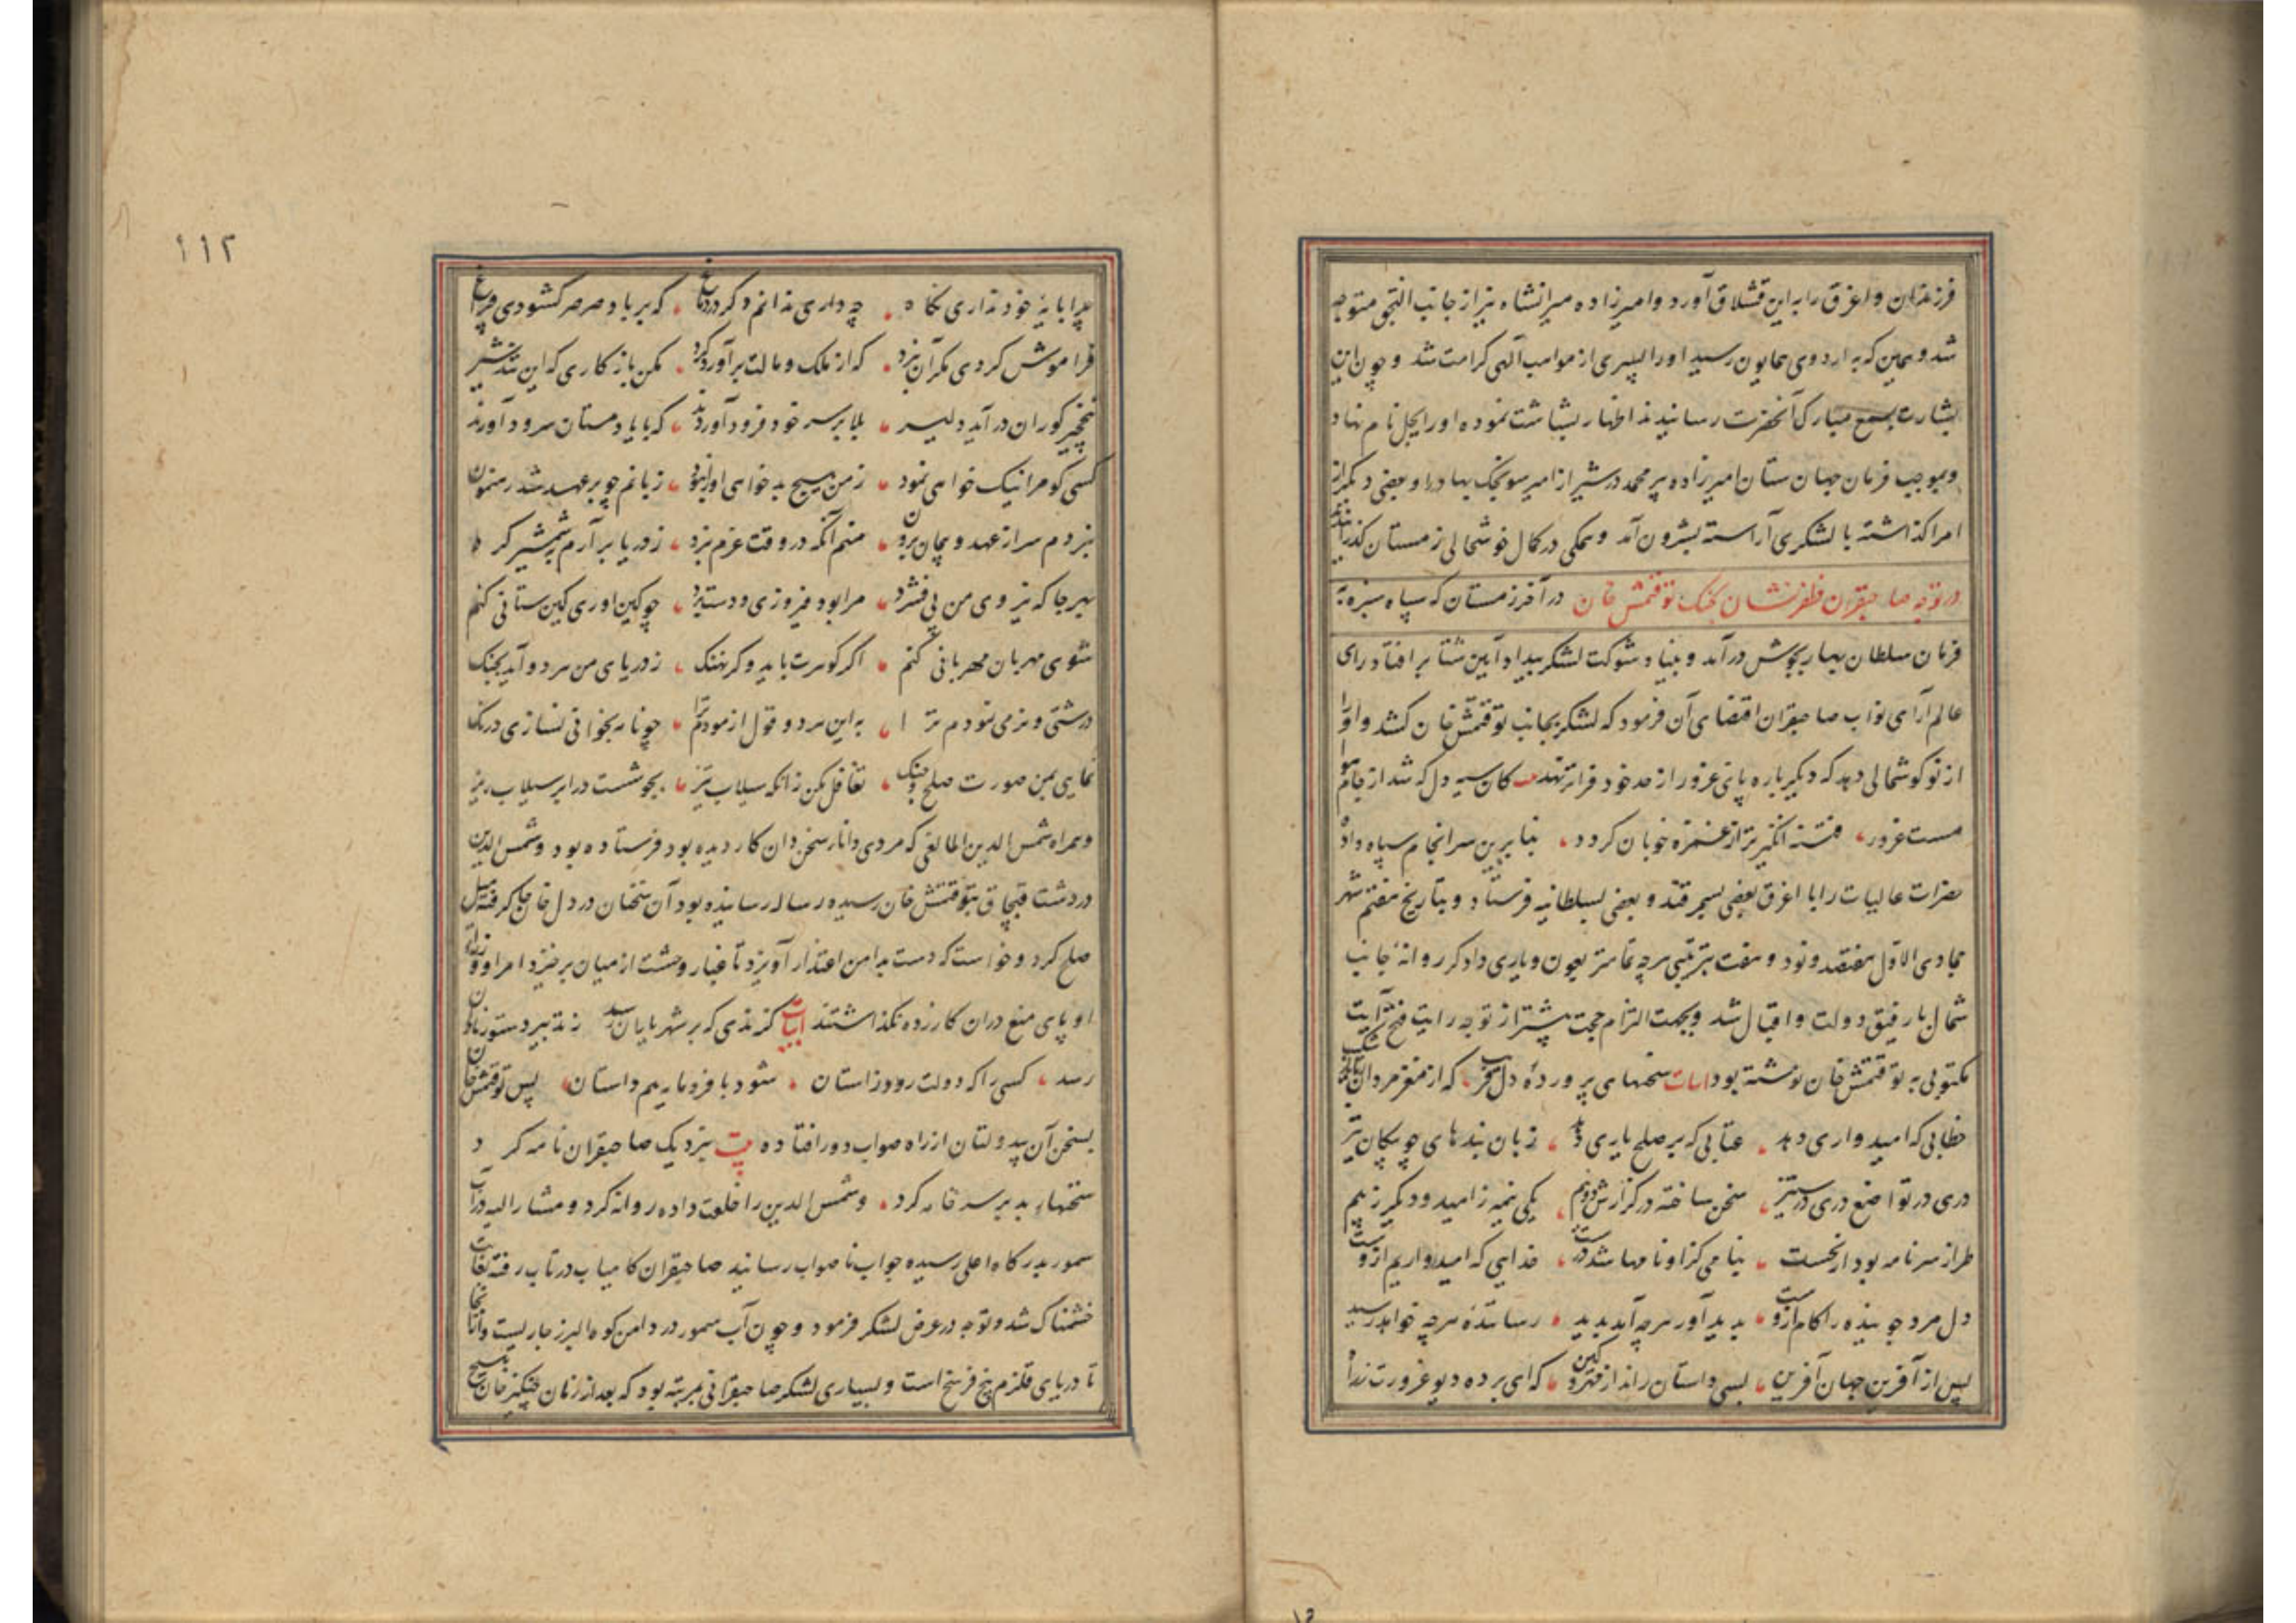 فرزندان و اغرق را به این قشلاق آورد و امیرزاده میرانشاه نیز از جانب النجق متوجه
شد و همین که به اردوی همایون رسید او را پسری از مواهب الهی کرامت شد و چون این
بشارت بسمع مبارک آنحضرت رسانیدند اظهار بشاشت نموده او را ایجل نام نهاد
و بموجب فرمان جهان ستان امیرزاده پیر محمد در شیراز امیر سونجک بهادر را و بعضی دیگر از
امرا گذاشته با لشکری آراسته بیرون آمد و همگی در کمال خوشحالی زمستان گذرانیدند
در توجه صاحبقران ظفرنشان بجنک توقتمش خان در آخر زمستان که سپاه سبزه به
فرمان سلطان بهار بجوش در آمد و بنیاد شوکت لشکر بیداد آیین شتا بر افتاد رای
عالم آرای نواب صاحبقران اقتضای آن فرمود که لشکر بجانب توقتمش خان کشد و او را
از نو گوشمالی دهد که دیگر باره پای غرور از حد خود فراتر ننهد کان سیه دل که شد از جام هوا
مست غرور، فتنه انگیز تر از غمزه خوبان گردد، بنا برین سرانجام سپاه داد
حضرات عالیات را با اغرق بعضی بسمرقند و بعضی بسلطانیه فرستاد و بتاریخ هفتم شهر
جمادی الاول هفتصد و نود و هفت بترتیبی هر چه تمامتر بعون و یاری دادگر روانهٔ جانب
شمال با رفیق دولت و اقبال شد و بجهت التزام حجت پیشتر از توجه رایت فتح آیت
مکتوبی به توقتمش خان نوشته بود ابیات سخنهای پرورده دل فریب، که از مغز مردان
خطابی که امیدواری دهد، عتابی که بر صلح یاری دهد، زبان بندهای چو پیکان تیز
دری در تواضع دری در ستیز، سخن ساخته در گزارش دو نیم، یکی نیمه ز امید و دیگر ز بیم
طراز سر نامه بود از نخست، بنامی کزو نامها شد درست، خدایی که امیدواریم ازوست
دل مرد جوینده را کام ازوست، پدید آور هر چه آید پدید، رسانندهٔ هر چه خواهد رسید
پس از آفرین جهان آفرین، بسی داستان راند از قهر و کین، که ای برده دیو غرورت ز راه
۱۱۲
چرا پایهٔ خود نداری نگاه، چه داری ندانم دگر در دماغ، که بر باد صرصر گشودی چراغ
فراموش کردی مگر آن نبرد، که از ملک و مالت برآورد گرد، مکن باز کاری که این تند شیر
بنخجیر گوران در آید دلیر، بلا بر سر خود فرود آورند، که با یاد مستان سرود آورند
کسی کو مرا نیک خواهی نمود، ز من هیچ بدخواهی او را نبود، زبانم چو بر عهد شد رهنمون
نبردم سر از عهد و پیمان برون، منم آنکه در وقت عزم نبرد، ز دریا برآرم بشمشیر گرد
بهر جا که نیروی من پی فشرد، مرا بود فیروزی و دستبرد، چو کین آوری کین ستانی کنم
شوی مهربان مهربانی کنم، اگر گوهرت باید و گر نهنک، ز دریای من هر دو آید بچنک
درشتی و نرمی نمودم ترا، به این هر دو قول آزمودم ترا، چو نامه بخوانی نسازی درنگ
نمایی بمن صورت صلح و جنک، تغافل مکن زانکه سیلاب تیز، بجوشست در ابر سیلاب ریز
و همراه شمس الدین المالیغی که مردی دانا و سخن دان کار دیده بود فرستاده بود و شمس الدین
در دشت قبچاق بتوقتمش خان رسیده رساله رسانیده بود آن سخنان در دل خان جا گرفته میل
صلح کرد و خواست که دست بدامن اعتذار آویزد تا غبار وحشت از میان برخیزد امرا و وزراء
او پای منع در آن کار زده نگذاشتند ابیات گزندی که بر شهریاران رسد ز تدبیر دستور نادان
رسد، کسی را که دولت رود ز آستان، شود با فرومایه هم داستان، پس توقتمش خان
بسخن آن بیدولتان از راه صواب دور افتاده بیت بنزدیک صاحبقران نامه کرد
سخنهای بد بر سر خامه کرد، و شمس الدین را خلعت داده روانه کرد و مشار الیه در آب
سمور بدرگاه اعلی رسیده جواب نا صواب رسانید صاحبقران کامیاب در تاب رفته بغایت
خشمناک شد و توجه در عرض لشکر فرمود و چون آب سمور در دامن کوه البرز جاریست و از آنجا
تا دریای قلزم پنج فرسخ است و بسیاری لشکر صاحبقرانی بمرتبه بود که بعد از زمان چنگیز خان هیچ